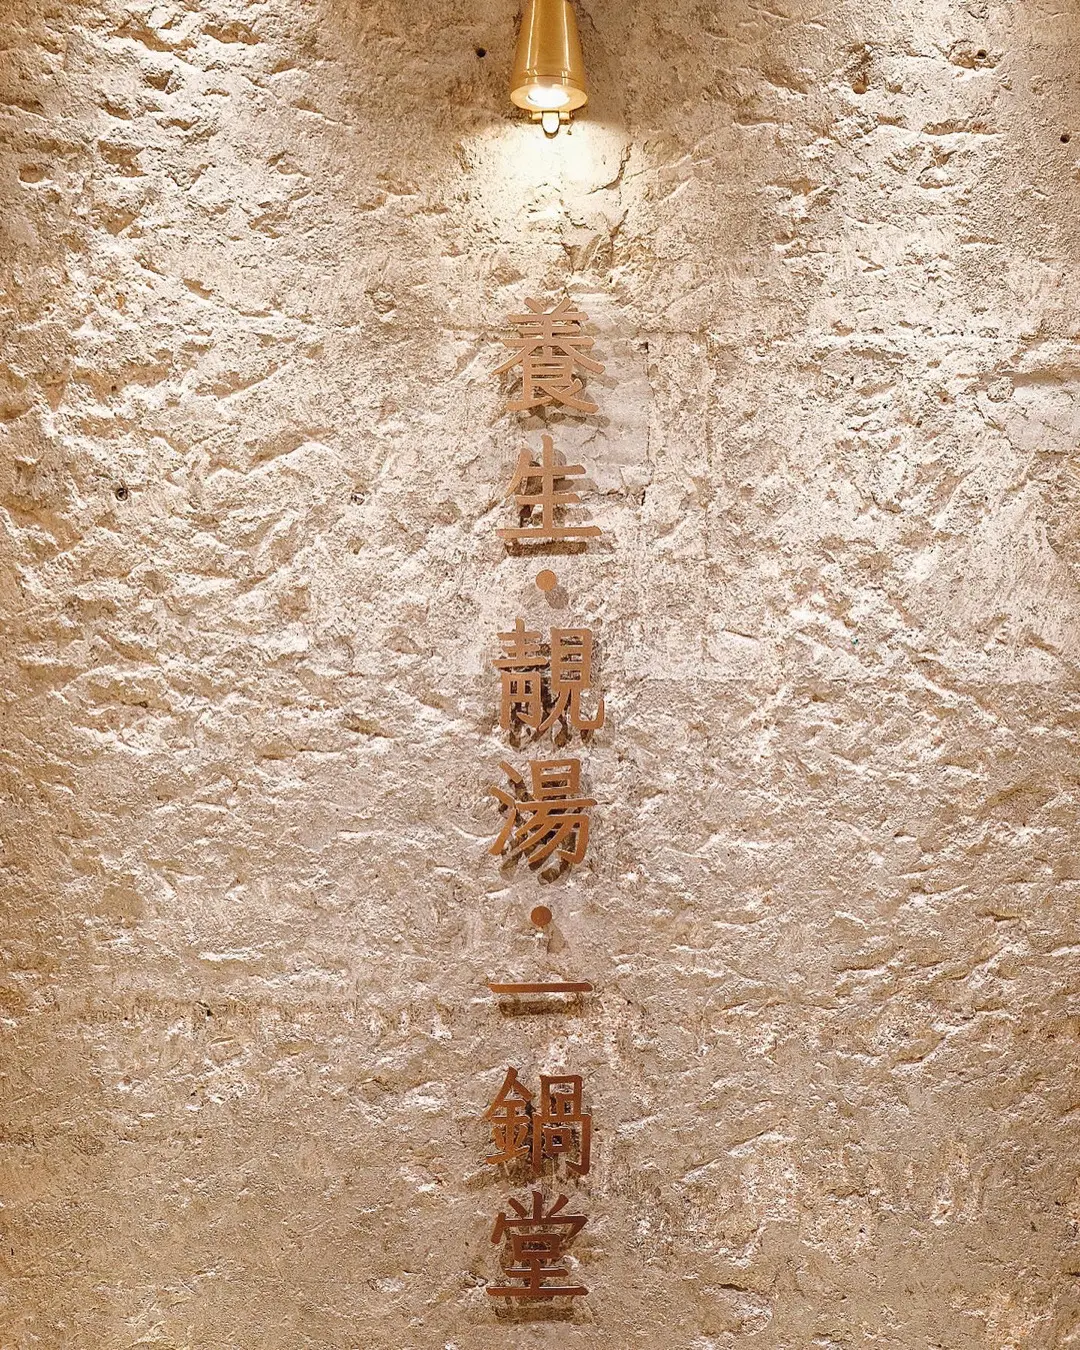 養生·靚湯·一鍋堂